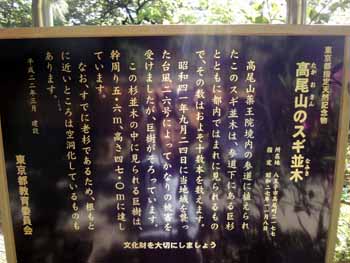 東京都指定天然記念物
高尾山のスギ並木
たかおさん
なみき
高尾山薬王院境内の参道に植えられ
たこのスギ並木は、参道下にある巨杉
とともに都内ではまれに見られるもの
で、その数はおよそ十数本を数えます。
昭和四一年九月二四日に当地域を襲っ
た台風二六号によってかなりの被害を
受けましたが、巨樹がそろっています。
この杉並木の中に見られる巨樹は、
幹周り五・六m、高さ四七・〇mに達し
ています。
なお、すでに老杉であるため、根もと
に近いところは空洞化しているものも
あります。
平成二二年三月 建設
東京都教育委員会
文化財を大切にしましょう